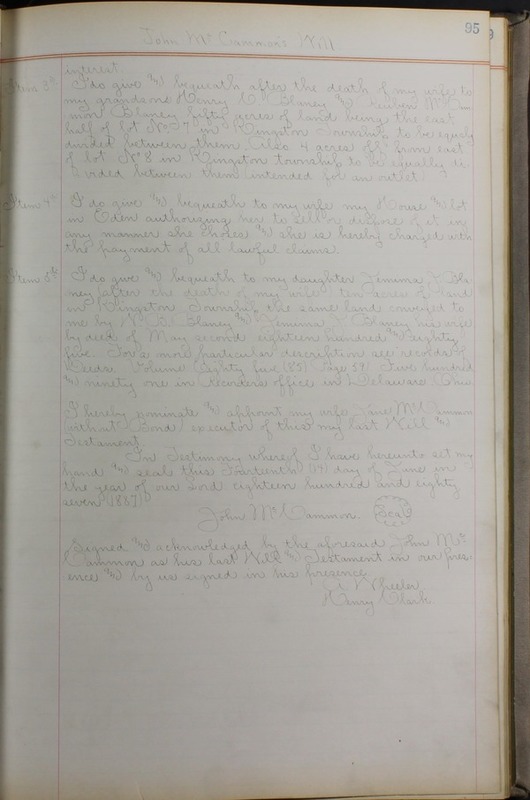 95
John McCammon's Will
interest.
Item 3d I do give & bequeath after the death of my wife to
my grandsons Henry C. Blaney & Reuben McCam
mon Blaney fifty acres of land being the east
half of lot No 7 in Kingston Township to be equaly
divided between them, also 4 acres off from east
of lot No 8 in Kingston township to be equally di-
vided between them intended for an outlet.
Item 4th I do give & bequeath to my wife my House & lot
in Eden authorizing her to sell or dispose of it in
any manner she choses & she is hereby charged with
the payment of all lawful claims.
Item 5th I do give & bequeath to my daughter Jemima J. Bla
ney (after the death of my wife) ten acres of land
in Kingston Township the same land conveyed to
me by Blaney & Jemima J. Blaney his wife
by deed of May second eighteen hundred & eighty
five. For a more particular description see records of
Deeds, Volume Eighty five (85) Page 591 Five hundred
& ninety one in Recorders office in Delaware Ohio
I hereby nominate & appoint my wife Jane McCammon
(without Bond) executor of this my last Will &
Testament.
In Testimony whereof I have hereunto set my
hand & seal this Fourteenth (14) day of June in
the year of our Lord eighteen hundred and eighty
seven (1887)
John McCammon. Seal
Signed & acknowledged by the aforesaid John Mc-
Cammon as his last Will & Testament in our pres-
ence & by us signed in his presence.
Wheeler
Henry Clark